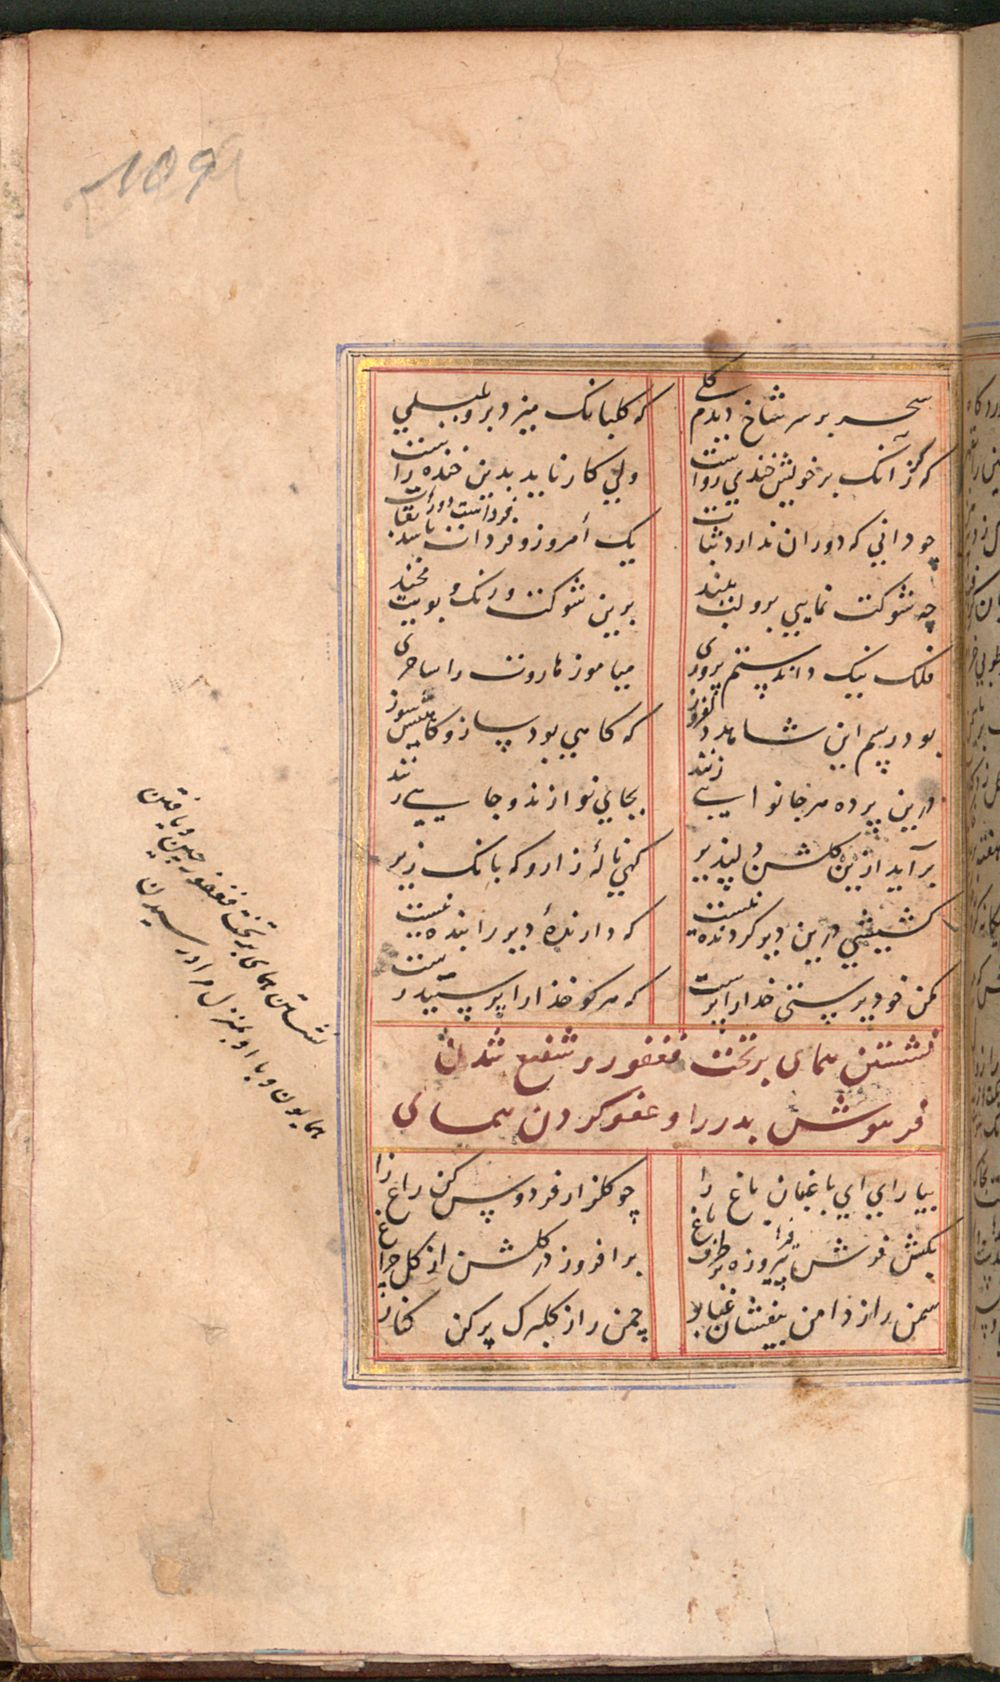 سحر بر سر شاخ دیدم گلی
که گلبانک میزد برو بلبلی
که گر آنک بر خویش خندی رواست
ولی کار ناید بدین خنده راست
چو دانی که دوران ندارد ثبات
یک امروز و فردات باشد بقات
چه شوکت نمایی برو لب ببند
برین شوکت و رنک و بویت مخند
فلک نیک داند ستم پروری
میاموز هاروت را ساحری
بود رسم این شاهد دلفروز
که کاهی بود ساز و کاهیش سوز
درین پرده هر جا نوایی زنند
بجایی نوازند و جایی زنند
برآید ازین کلشن دلپذیر
کهی نالهٔ زار و که بانک زیر
کشیشی درین دیر کردنده نیست
که دارندهٔ دیر را بنده نیست
مکن خود پرستی خدارا پرست
که هر کو خدارا پرستید رست
نشستن همای بر تخت فغفور و شفیع شدن
فرهوش بدر را و عفو کردن همای
بیارای ای باغبان باغ را
چو کلزار فردوس کن راغ را
بکش فرش پیروزه بر طرف باغ
برافروز در کلشن از کل چراغ
سمن را ز دامن بیفشان غبار
چمن را ز کلبرک پر کن کنار
نشستن همای بر تخت فغفور چین و یافتن
همایون و با او بمنزل مراد رسیدن